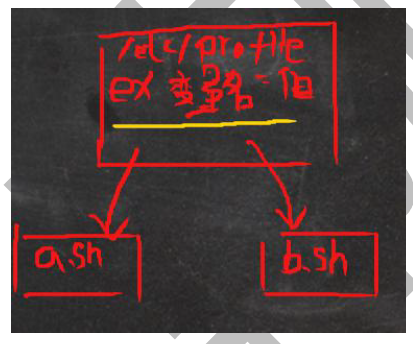 /etc/profile
ex 变量名=值
a.sh
b.sh